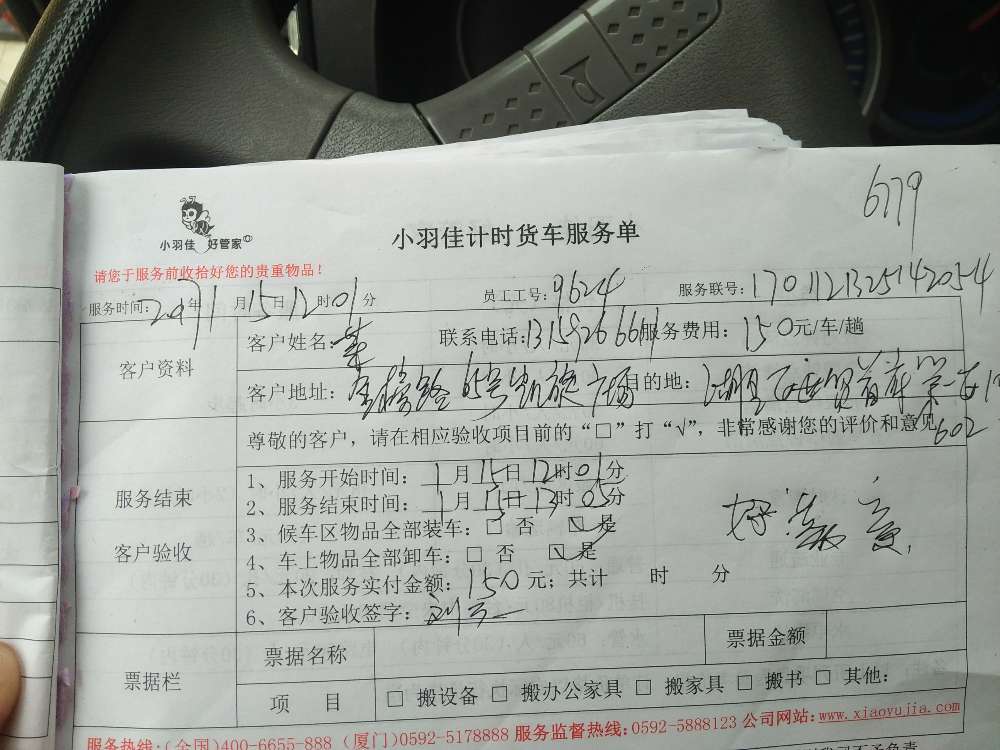 6779
小羽佳 好管家
小羽佳计时货车服务单
请您于服务前收拾好您的贵重物品！
服务时间：2017年1月15日12时01分 员工工号：9624 服务联号：1701121325142054
客户资料
客户姓名： 联系电话：13159266611 服务费用：150元/车/趟
客户地址：金榜路65号凯旋广场 目的地：湖里
602
尊敬的客户，请在相应验收项目前的“□”打“√”，非常感谢您的评价和意见
服务结束
客户验收
1、服务开始时间：1月15日12时01分
2、服务结束时间：1月15日13时05分
3、候车区物品全部装车：□ 否 ☑ 是
4、车上物品全部卸车：□ 否 ☑ 是
5、本次服务实付金额：150元；共计 时 分
6、客户验收签字：
好
票据栏
票据名称 票据金额
项 目 □ 搬设备 □ 搬办公家具 □ 搬家具 □ 搬书 □ 其他：
服务热线：(全国)400-6655-888 (厦门)0592-5178888 服务监督热线：0592-5888123 公司网站：www.xiaoyujia.com